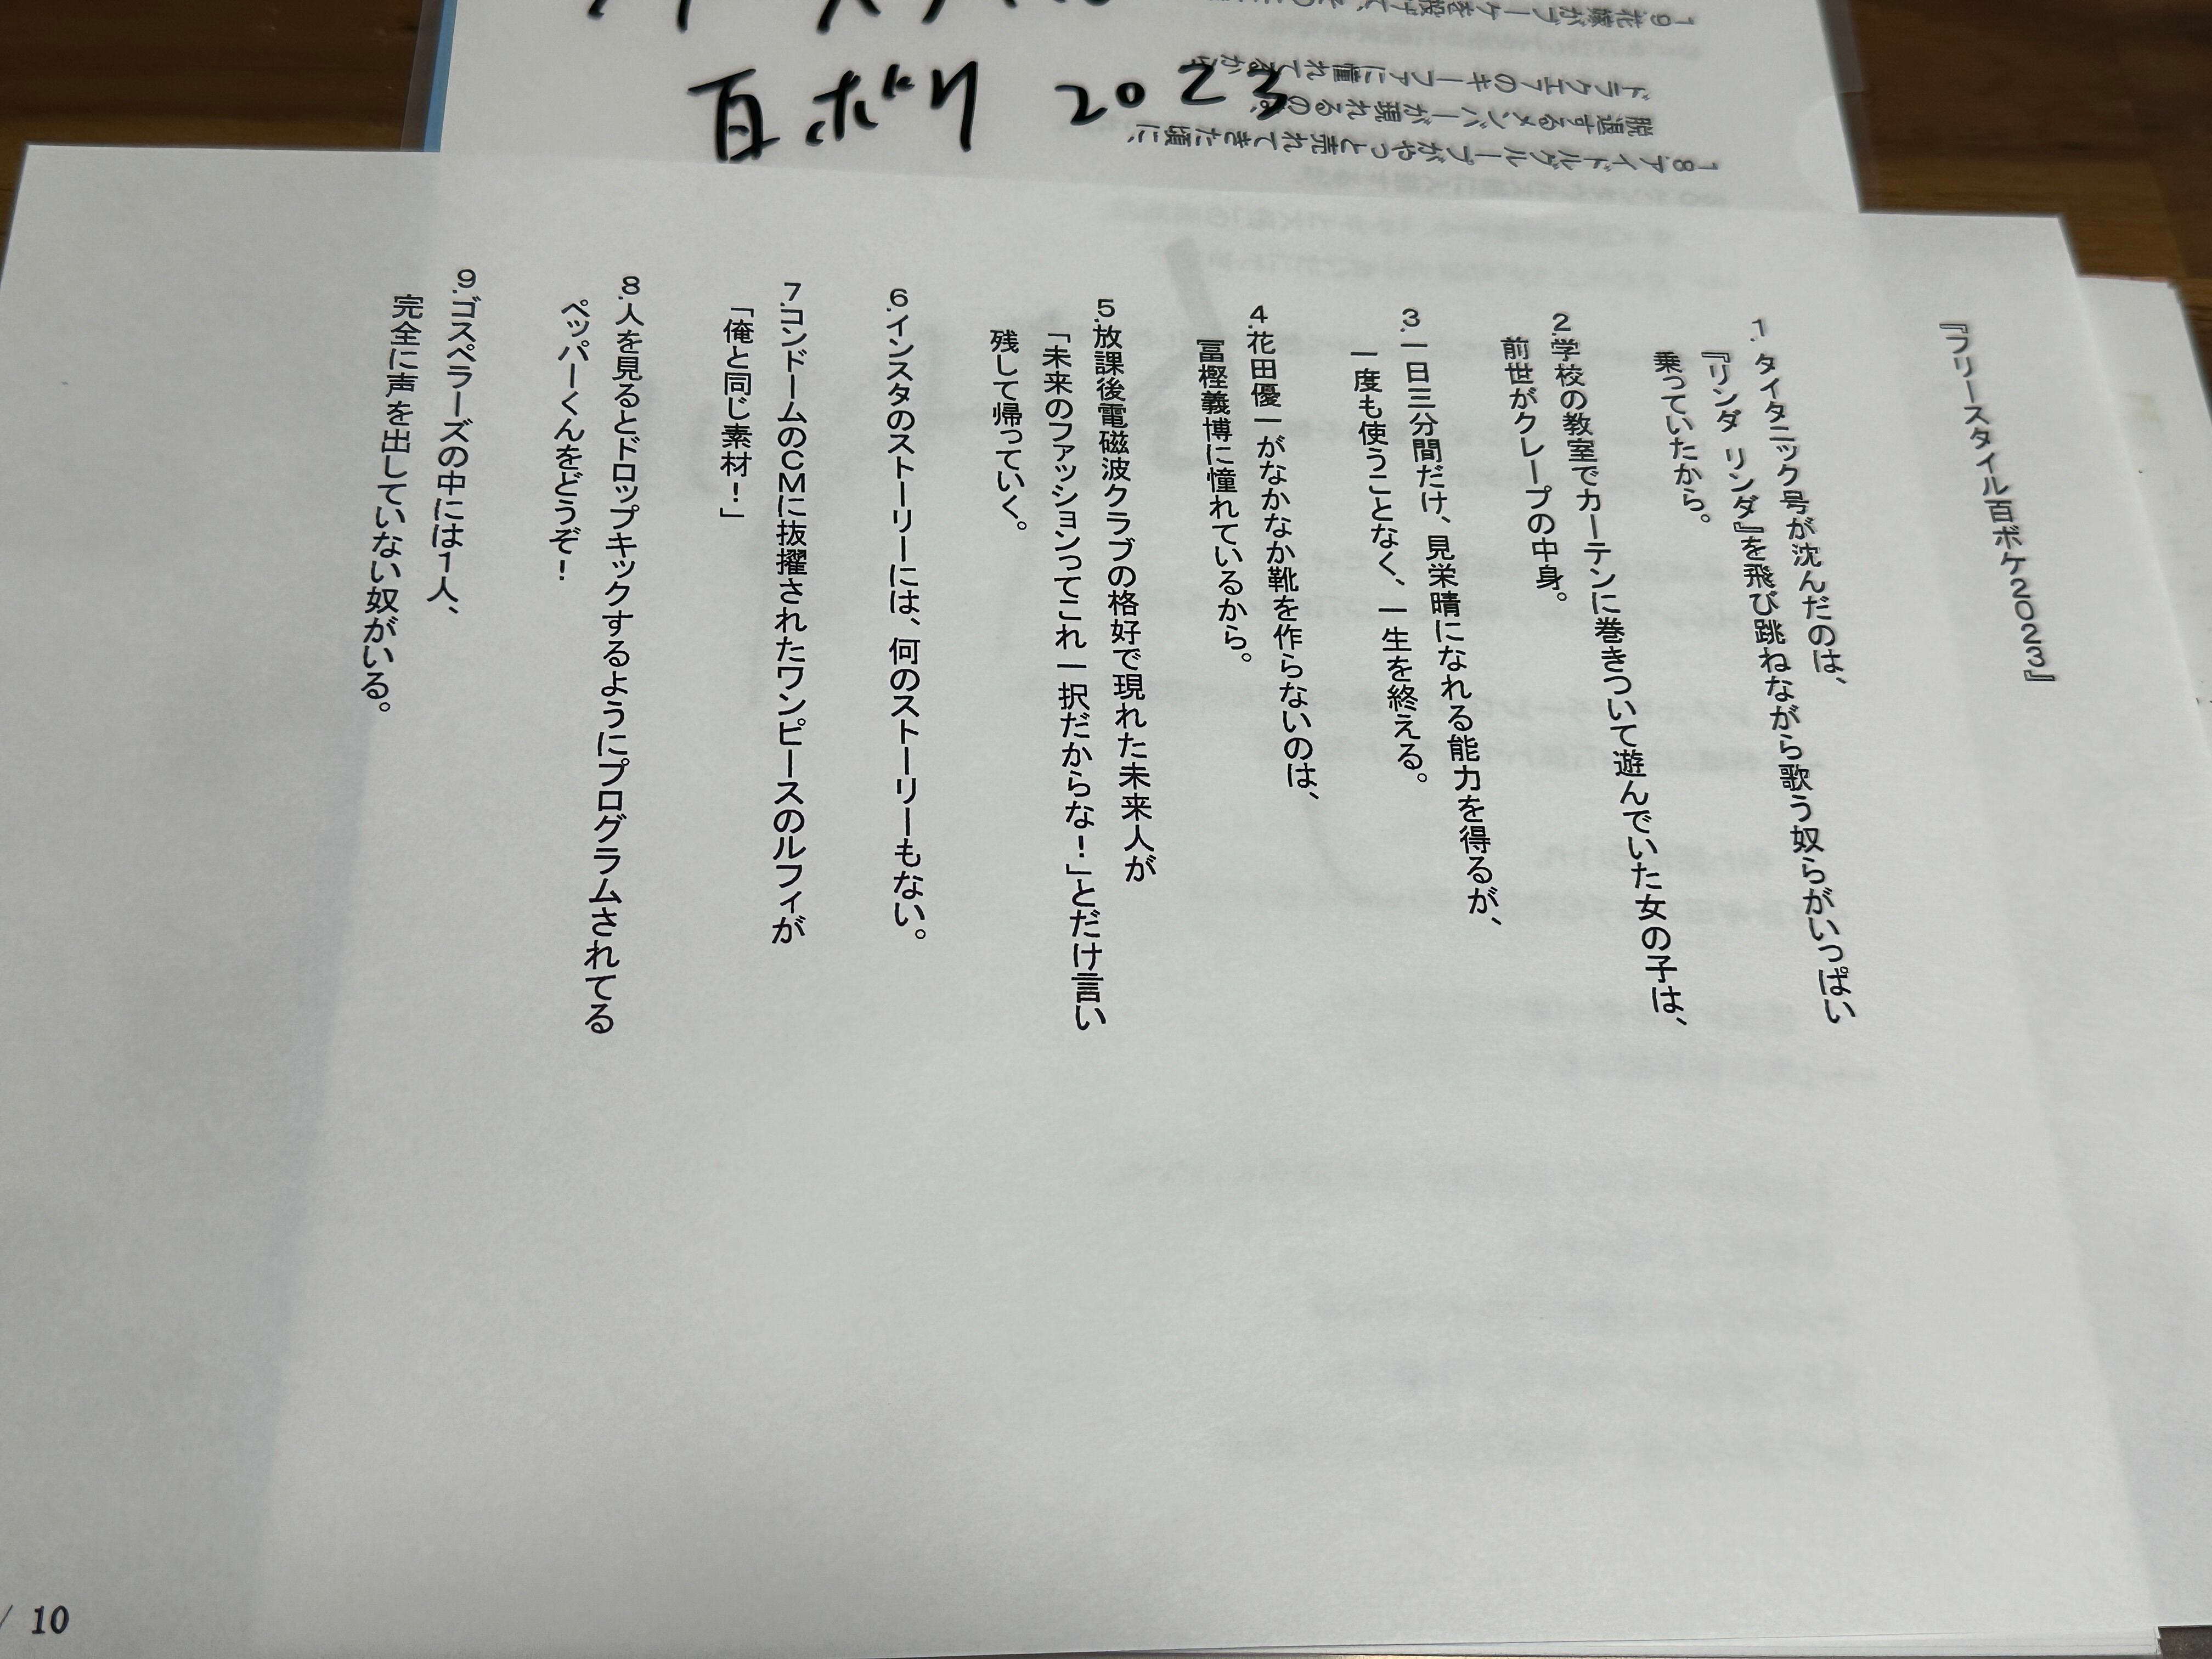 『フリースタイル百ボケ2023』
1. タイタニック号が沈んだのは、
『リンダ リンダ』を飛び跳ねながら歌う奴らがいっぱい
乗っていたから。
2.学校の教室でカーテンに巻きついて遊んでいた女の子は、
前世がクレープの中身。
3.一日三分間だけ、見栄晴になれる能力を得るが、
一度も使うことなく、一生を終える。
4.花田優一がなかなか靴を作らないのは、
冨樫義博に憧れているから。
5.放課後電磁波クラブの格好で現れた未来人が
「未来のファッションってこれ一択だからな！」とだけ言い
残して帰っていく。
6.インスタのストーリーには、何のストーリーもない。
7.コンドームのCMに抜擢されたワンピースのルフィが
「俺と同じ素材！」
8.人を見るとドロップキックするようにプログラムされてる
ペッパーくんをどうぞ！
9.ゴスペラーズの中には1人、
完全に声を出していない奴がいる。
/ 10
百ボケ 2023
18.アイドルグループがやっと売れてきた頃に、
脱退するメンバーが現れるのは、
ドラクエ7のキーファに憧れてるから
19.花嫁がブーケを投げて、